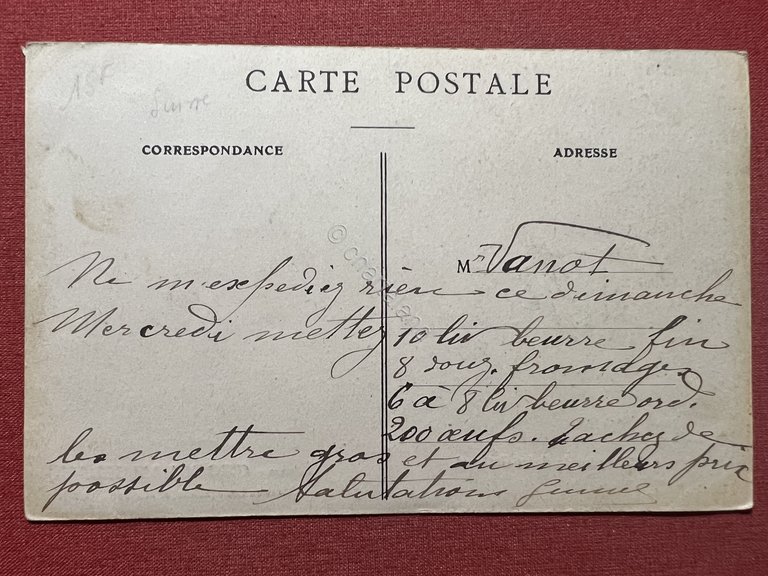 CARTE POSTALE
CORRESPONDANCE
ADRESSE
M Vanot
Ne m'expediez rien ce dimanche
Mercredi mettez 10 liv beurre fin
8 douz. fromages
6 à 8 liv beurre ord.
200 œufs. Tachez de
les mettre gros et au meilleurs prix
possible Salutations